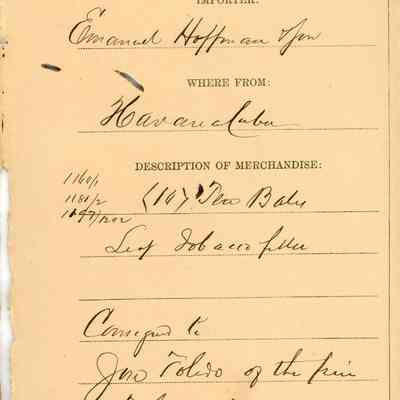 IMPORTER:
Emanuel Hoffman & Son
WHERE FROM:
Havana Cuba
DESCRIPTION OF MERCHANDISE:
1160/1
1181/2
(10) Ten Bales
Leaf Tobacco filler
Consigned to
Jose Toledo of the firm